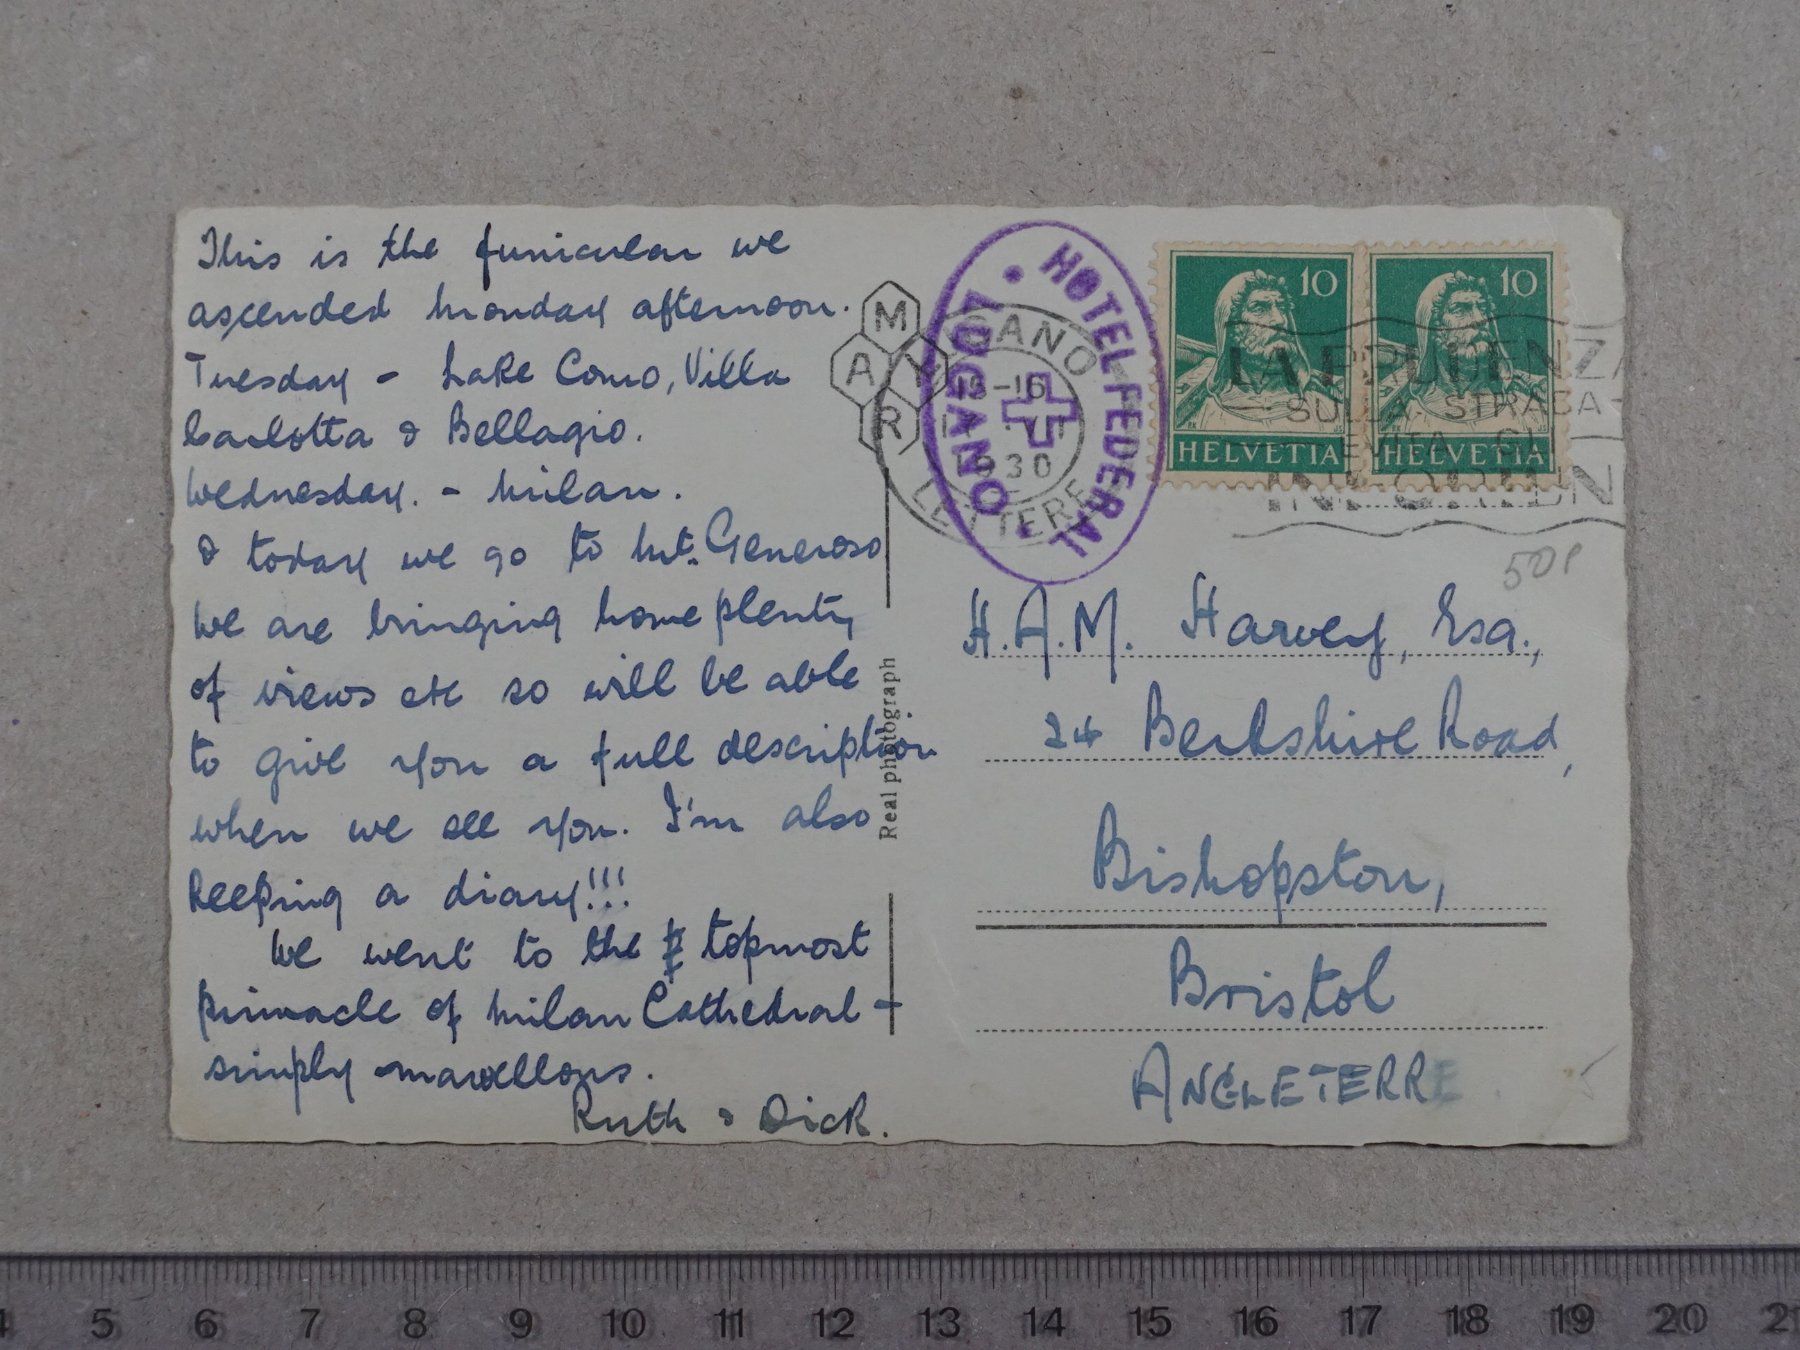 This is the funicular we
ascended Monday afternoon.
Tuesday – Lake Como, Villa
Carlotta & Bellagio.
Wednesday. – Milan.
& today we go to Mt. Generoso
We are bringing home plenty
of views etc so will be able
to give you a full description
when we see you. I'm also
keeping a diary!!!
We went to the topmost
pinnacle of Milan Cathedral –
simply marvellous.
Ruth & Dick.
Real photograph
M
A
R
HOTEL FEDERAL
LUGANO
LUGANO
15-16
1930
LETTERE
10
HELVETIA
10
HELVETIA
LA PRUDENZA
SULLA STRADA
EVITA GL
INFORTUN
50p
H.A.M. Harvey, Esq.,
24 Berkshire Road,
Bishopston,
Bristol
ANGLETERRE
4 5 6 7 8 9 10 11 12 13 14 15 16 17 18 19 20 21